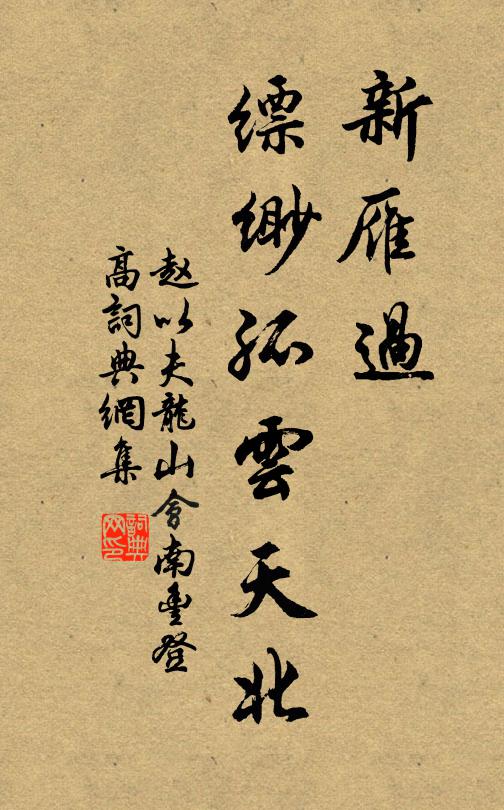 新雁過
縹緲孤雲天北
赵以夫龍山會南豊登
高詞典網集
詞典
网印